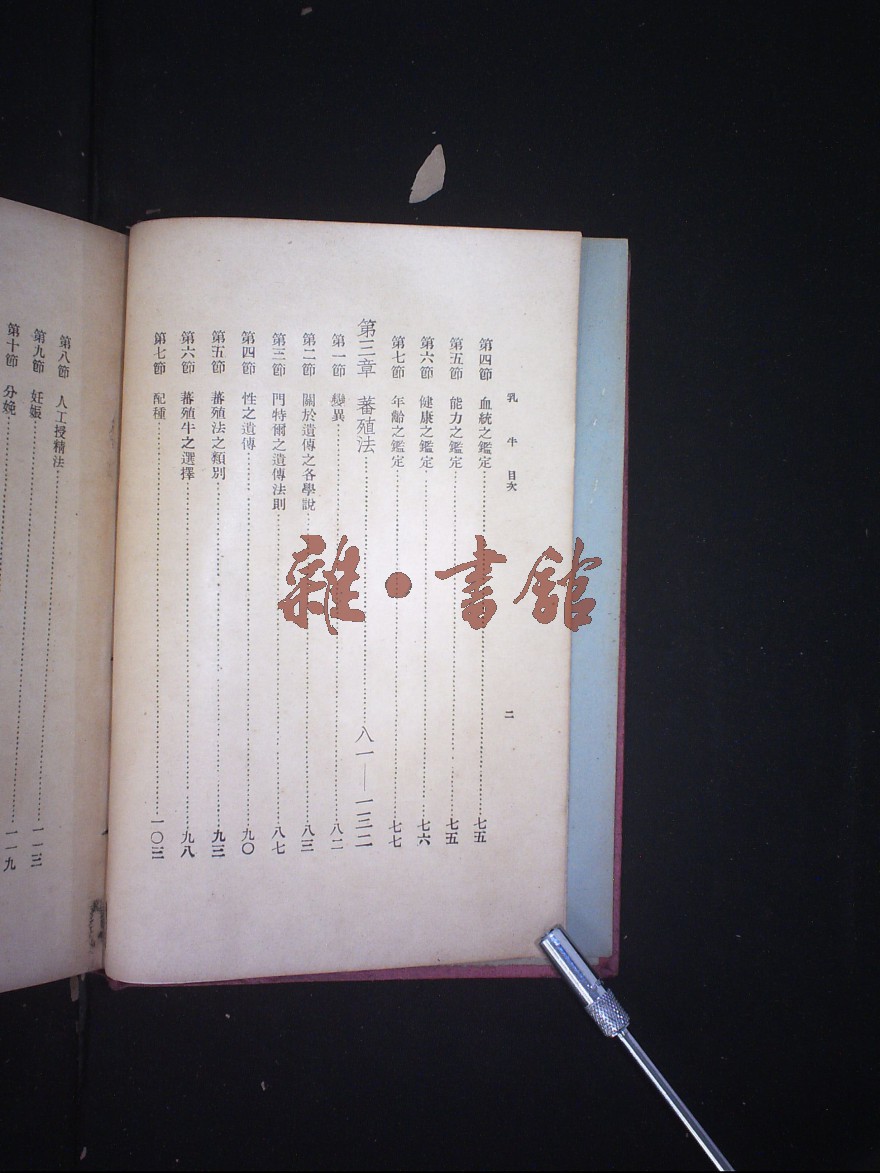 乳牛 目次
二
第四節 血統之鑑定 七五
第五節 能力之鑑定 七五
第六節 健康之鑑定 七六
第七節 年齡之鑑定 七七
第三章 蕃殖法 八一—一三二
第一節 變異 八二
第二節 關於遺傳之各學說 八三
第三節 門特爾之遺傳法則 八七
第四節 性之遺傳 九〇
第五節 蕃殖法之類別 九三
第六節 蕃殖牛之選擇 九八
第七節 配種 一〇三
第八節 人工授精法
第九節 妊娠 一一三
第十節 分娩 一一九
雜·書館